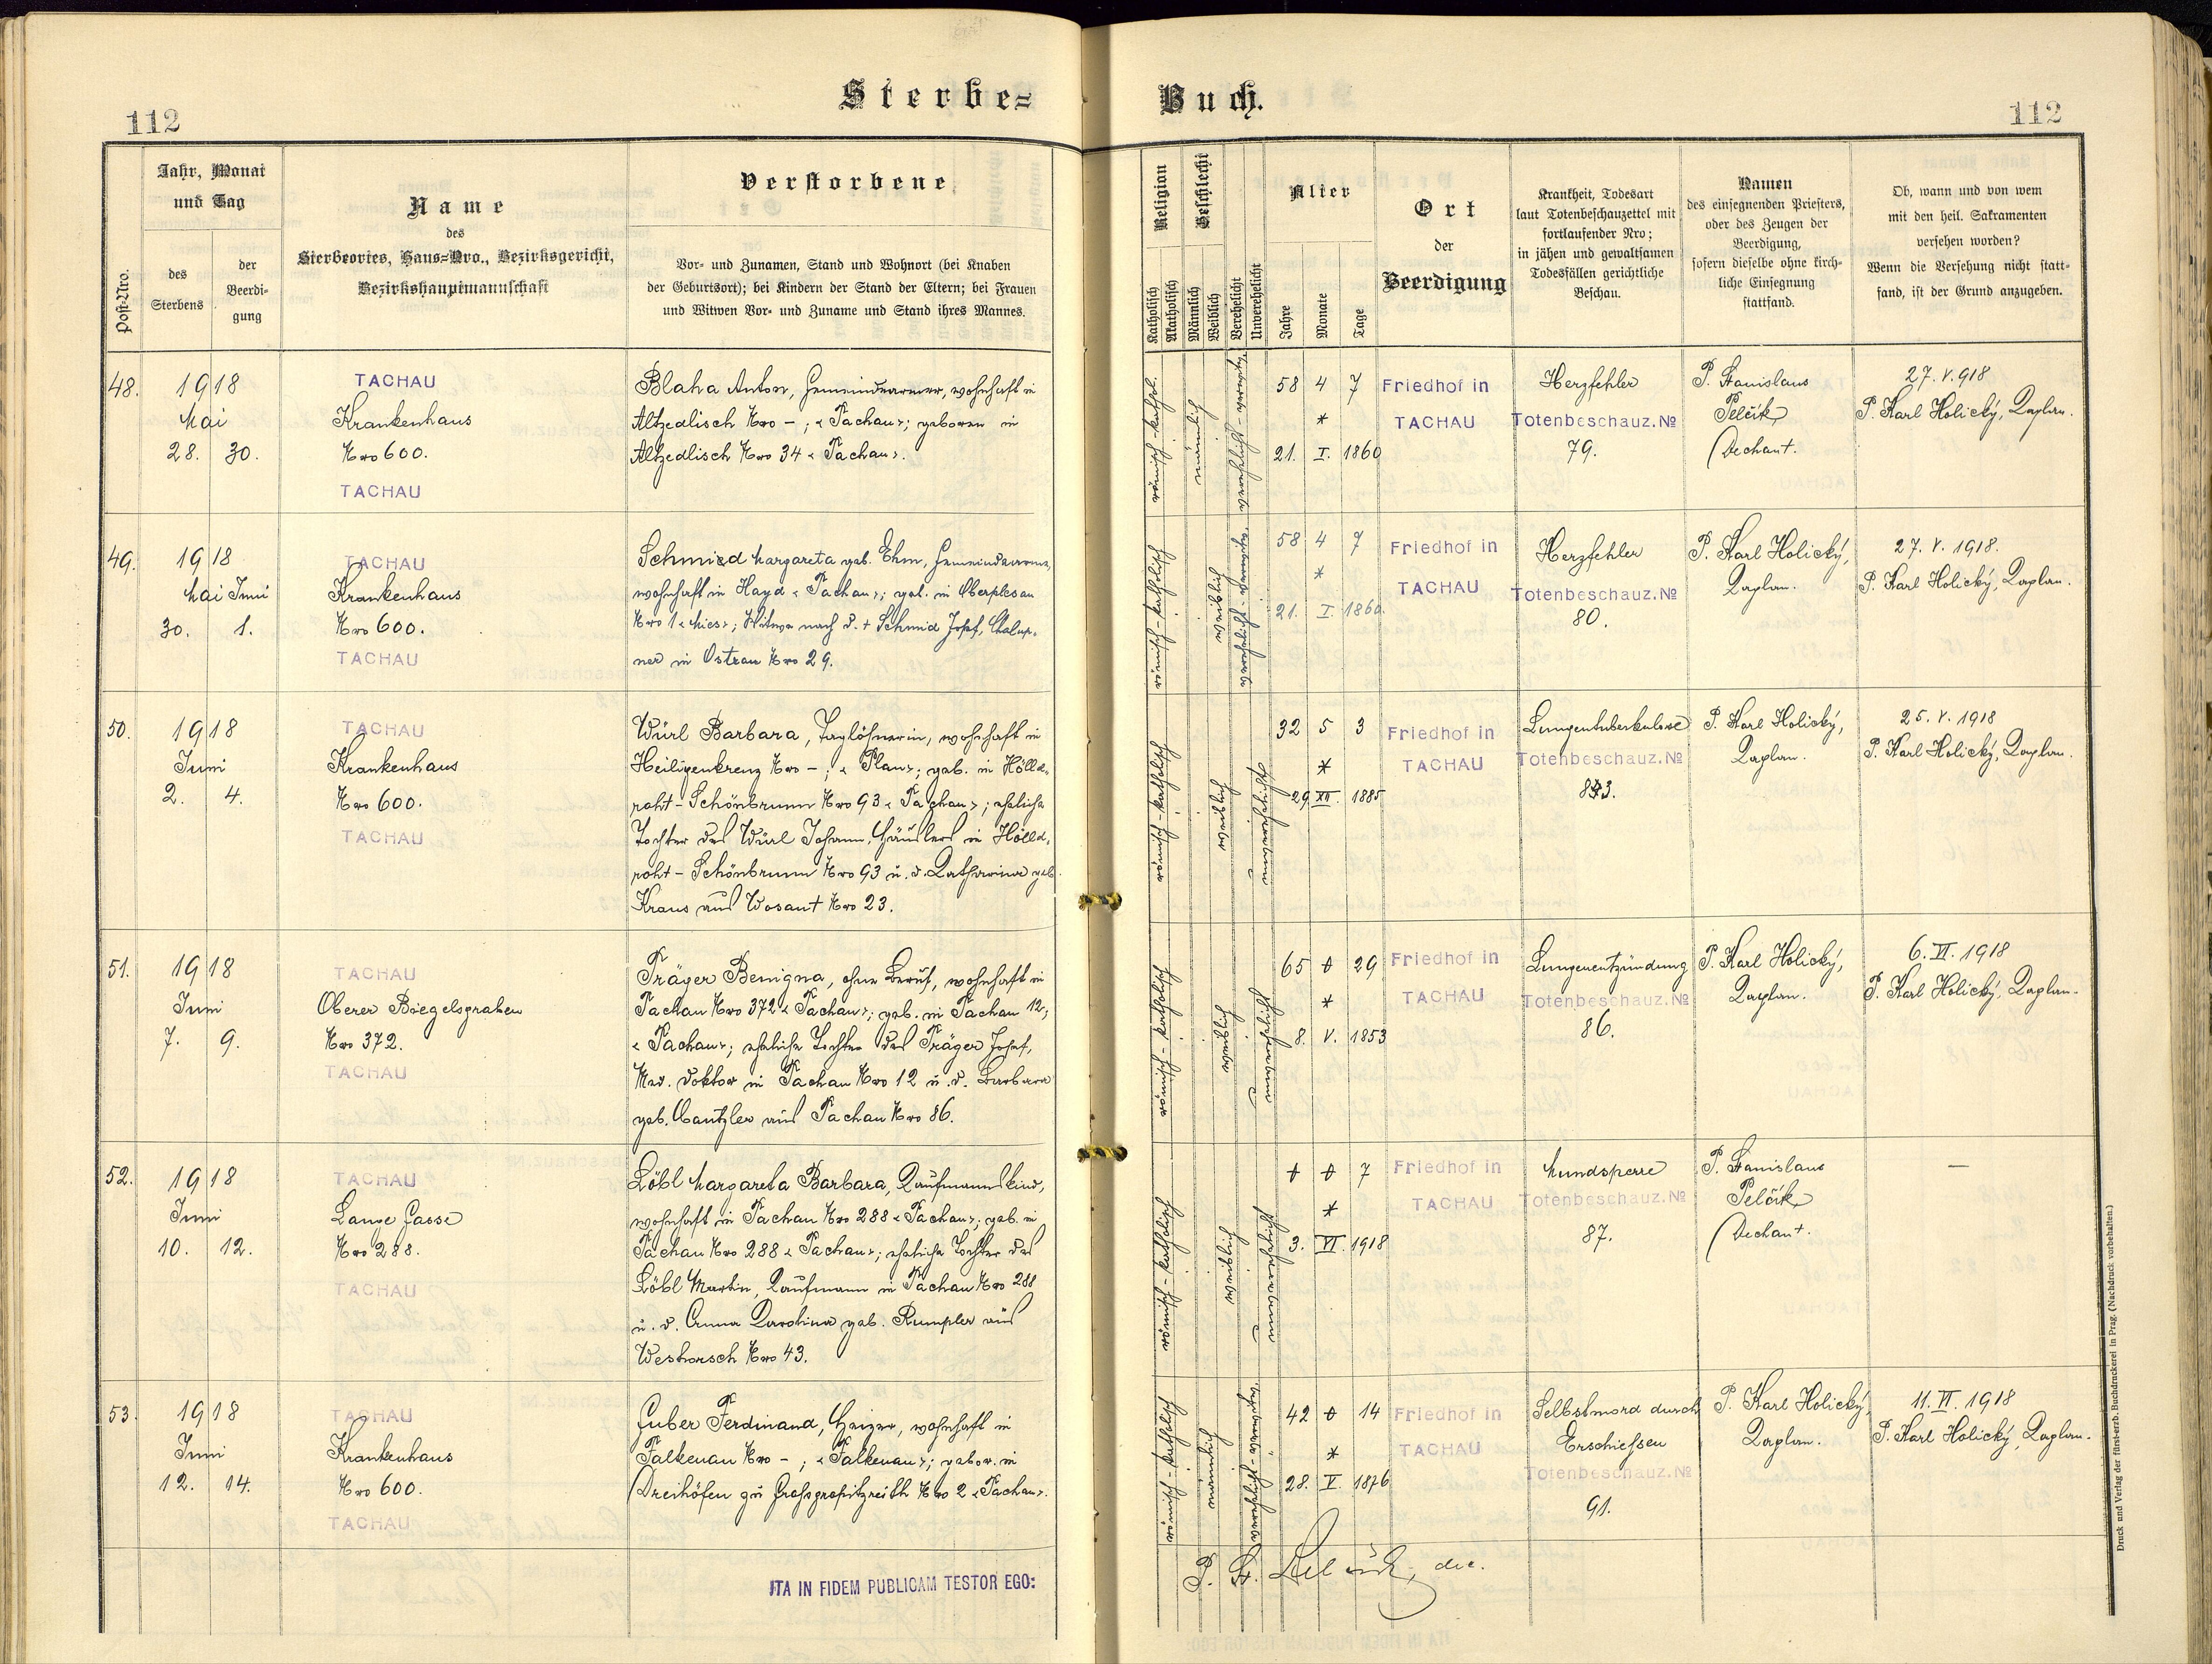 Sterbe=
Buch.
112
112
Jahr, Monat
und Tag
Post-Nro.
des
Sterbens
der
Beerdi-
gung
Name
des
Sterbeortes, Haus-Nro., Bezirksgericht,
Bezirkshauptmannschaft
Verstorbene
Vor- und Zunamen, Stand und Wohnort (bei Knaben
der Geburtsort); bei Kindern der Stand der Eltern; bei Frauen
und Witwen Vor- und Zuname und Stand ihres Mannes.
Religion
Katholisch
Akatholisch
Geschlecht
Männlich
Weiblich
Verehelicht
Unverehelicht
Alter
Jahre
Monate
Tage
Ort
der
Beerdigung
Krankheit, Todesart
laut Totenbeschauzettel mit
fortlaufender Nro;
in jähen und gewaltsamen
Todesfällen gerichtliche
Beschau.
Namen
des einsegnenden Priesters,
oder des Zeugen der
Beerdigung,
sofern dieselbe ohne kirch-
liche Einsegnung
stattfand.
Ob, wann und von wem
mit den heil. Sakramenten
versehen worden?
Wenn die Versehung nicht statt-
fand, ist der Grund anzugeben.
48.
1918
Mai
28. 30.
TACHAU
Krankenhaus
Nro 600.
TACHAU
Blaha Anton, Gemeindearmer, wohnhaft in
Altzedlisch Nro - ; «Tachau»; geboren in
Altzedlisch Nro 34 «Tachau».
römisch-kathol.
männlich
verehelicht - verwitw.
58 4 7
*
21. I. 1860
Friedhof in
TACHAU
Herzfehler
Totenbeschauz. No
79.
P. Stanislaus
Pelčík
Dechant.
27. V. 918
P. Karl Holický, Kaplan.
49.
1918
Mai Juni
30. 1.
TACHAU
Krankenhaus
Nro 600.
TACHAU
Schmied Margareta geb. Ehm, Gemeindearme,
wohnhaft in Hayd «Tachau»; geb. in Oberplesau
Nro 1 «Mies»; Witwe nach d. + Schmid Josef, Chalup-
ner in Ostrau Nro 29.
römisch-katholisch
weiblich
verehelicht - verwitw.
58 4 7
*
21. I. 1860.
Friedhof in
TACHAU
Herzfehler
Totenbeschauz. No
80.
P. Karl Holický,
Kaplan.
27. V. 1918.
P. Karl Holický, Kaplan.
50.
1918
Juni
2. 4.
TACHAU
Krankenhaus
Nro 600.
TACHAU
Würl Barbara, Taglöhnerin, wohnhaft in
Heiligenkreuz Nro - ; «Plan»; geb. in Hölld-
roht - Schönbrunn Nro 93 «Tachau»; eheliche
Tochter des Würl Johann, Häuslers in Hölld-
roht - Schönbrunn Nro 93 u. d. Katharina geb.
Kraus aus Wosant Nro 23.
römisch-katholisch
weiblich
unverehelicht
32 5 3
*
29 XII. 1885
Friedhof in
TACHAU
Lungentuberkulose
Totenbeschauz. No
83.
P. Karl Holický,
Kaplan.
25. V. 1918
P. Karl Holický, Kaplan.
51.
1918
Juni
7. 9.
TACHAU
Oberer Bregelsgraben
Nro 372.
TACHAU
Träger Benigna, ohne Beruf, wohnhaft in
Tachau Nro 372 «Tachau»; geb. in Tachau 12;
«Tachau»; eheliche Tochter des Träger Josef,
Med. Doktor in Tachau Nro 12 u. d. Barbara
geb. Cantzler aus Tachau Nro 86.
römisch-katholisch
weiblich
unverehelicht
65 0 29
*
8. V. 1853
Friedhof in
TACHAU
Lungenentzündung
Totenbeschauz. No
86.
P. Karl Holický,
Kaplan.
6. VI. 1918
P. Karl Holický, Kaplan.
52.
1918
Juni
10. 12.
TACHAU
Lange Gasse
Nro 288.
TACHAU
Löbl Margareta Barbara, Kaufmannskind,
wohnhaft in Tachau Nro 288 «Tachau»; geb. in
Tachau Nro 288 «Tachau»; eheliche Tochter des
Löbl Martin, Kaufmann in Tachau Nro 288
u. d. Anna Karolina geb. Rumpler aus
Weshorsch Nro 43.
römisch-katholisch
weiblich
unverehelicht
0 0 7
*
3. VI. 1918
Friedhof in
TACHAU
Mundsperre
Totenbeschauz. No
87.
P. Stanislaus
Pelčík
Dechant.
—
53.
1918
Juni
12. 14.
TACHAU
Krankenhaus
Nro 600.
TACHAU
Guber Ferdinand, Heizer, wohnhaft in
Falkenau Nro - ; «Falkenau»; gebor. in
Dreihöfen zu Grossgropitzreith Nro 2 «Tachau».
römisch-katholisch
männlich
verehelicht - verwitw.
42 0 14
*
28. V. 1876
Friedhof in
TACHAU
Selbstmord durch
Erschiessen
Totenbeschauz. No
91.
P. Karl Holický,
Kaplan.
11. VI. 1918
P. Karl Holický, Kaplan.
ITA IN FIDEM PUBLICAM TESTOR EGO:
P. St. Pelčík, dec.
Druck und Verlag der fürst-erzb. Buchdruckerei in Prag. (Nachdruck vorbehalten.)